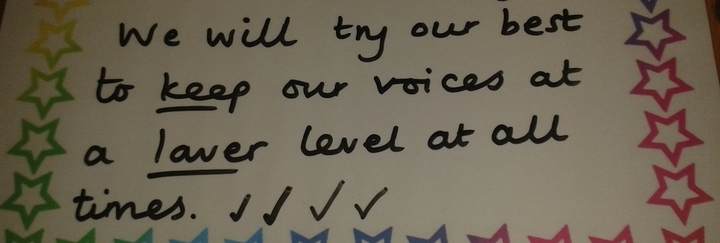 We will try our best
to keep our voices at
a laver level at all
times. ✓✓✓✓